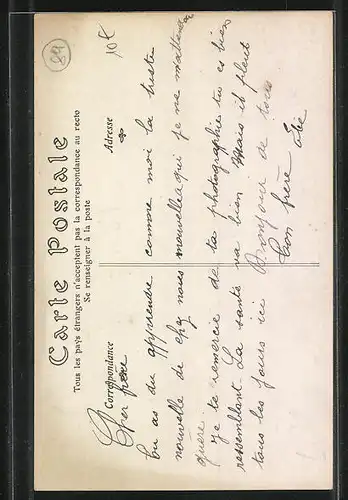 89
10€
Carte Postale
Tous les pays étrangers n'acceptent pas la correspondance au recto
Se renseigner à la poste
Correspondance
Adresse
Cher frère
tu as du apprendre comme moi la triste
nouvelle de chez nous nouvelle a qui je ne m'attendai
guère.
Je te remercie de ta photographie tu es bien
ressemblant. La santé va bien Mais il pleut
tous les jours ici Bonjour de tous
ton frère